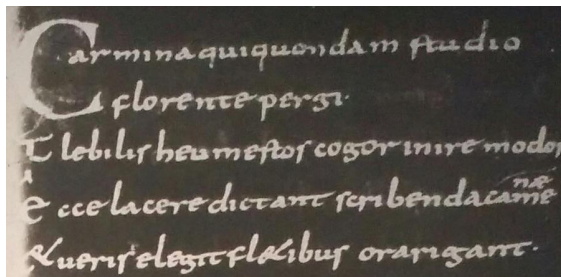 Carmina qui quondam studio
florente pergi·
Flebilis heu mestos cogor inire modos
Ecce lacere dictant scribenda camenæ
& ueris elegit fl&ibus ora rigant·